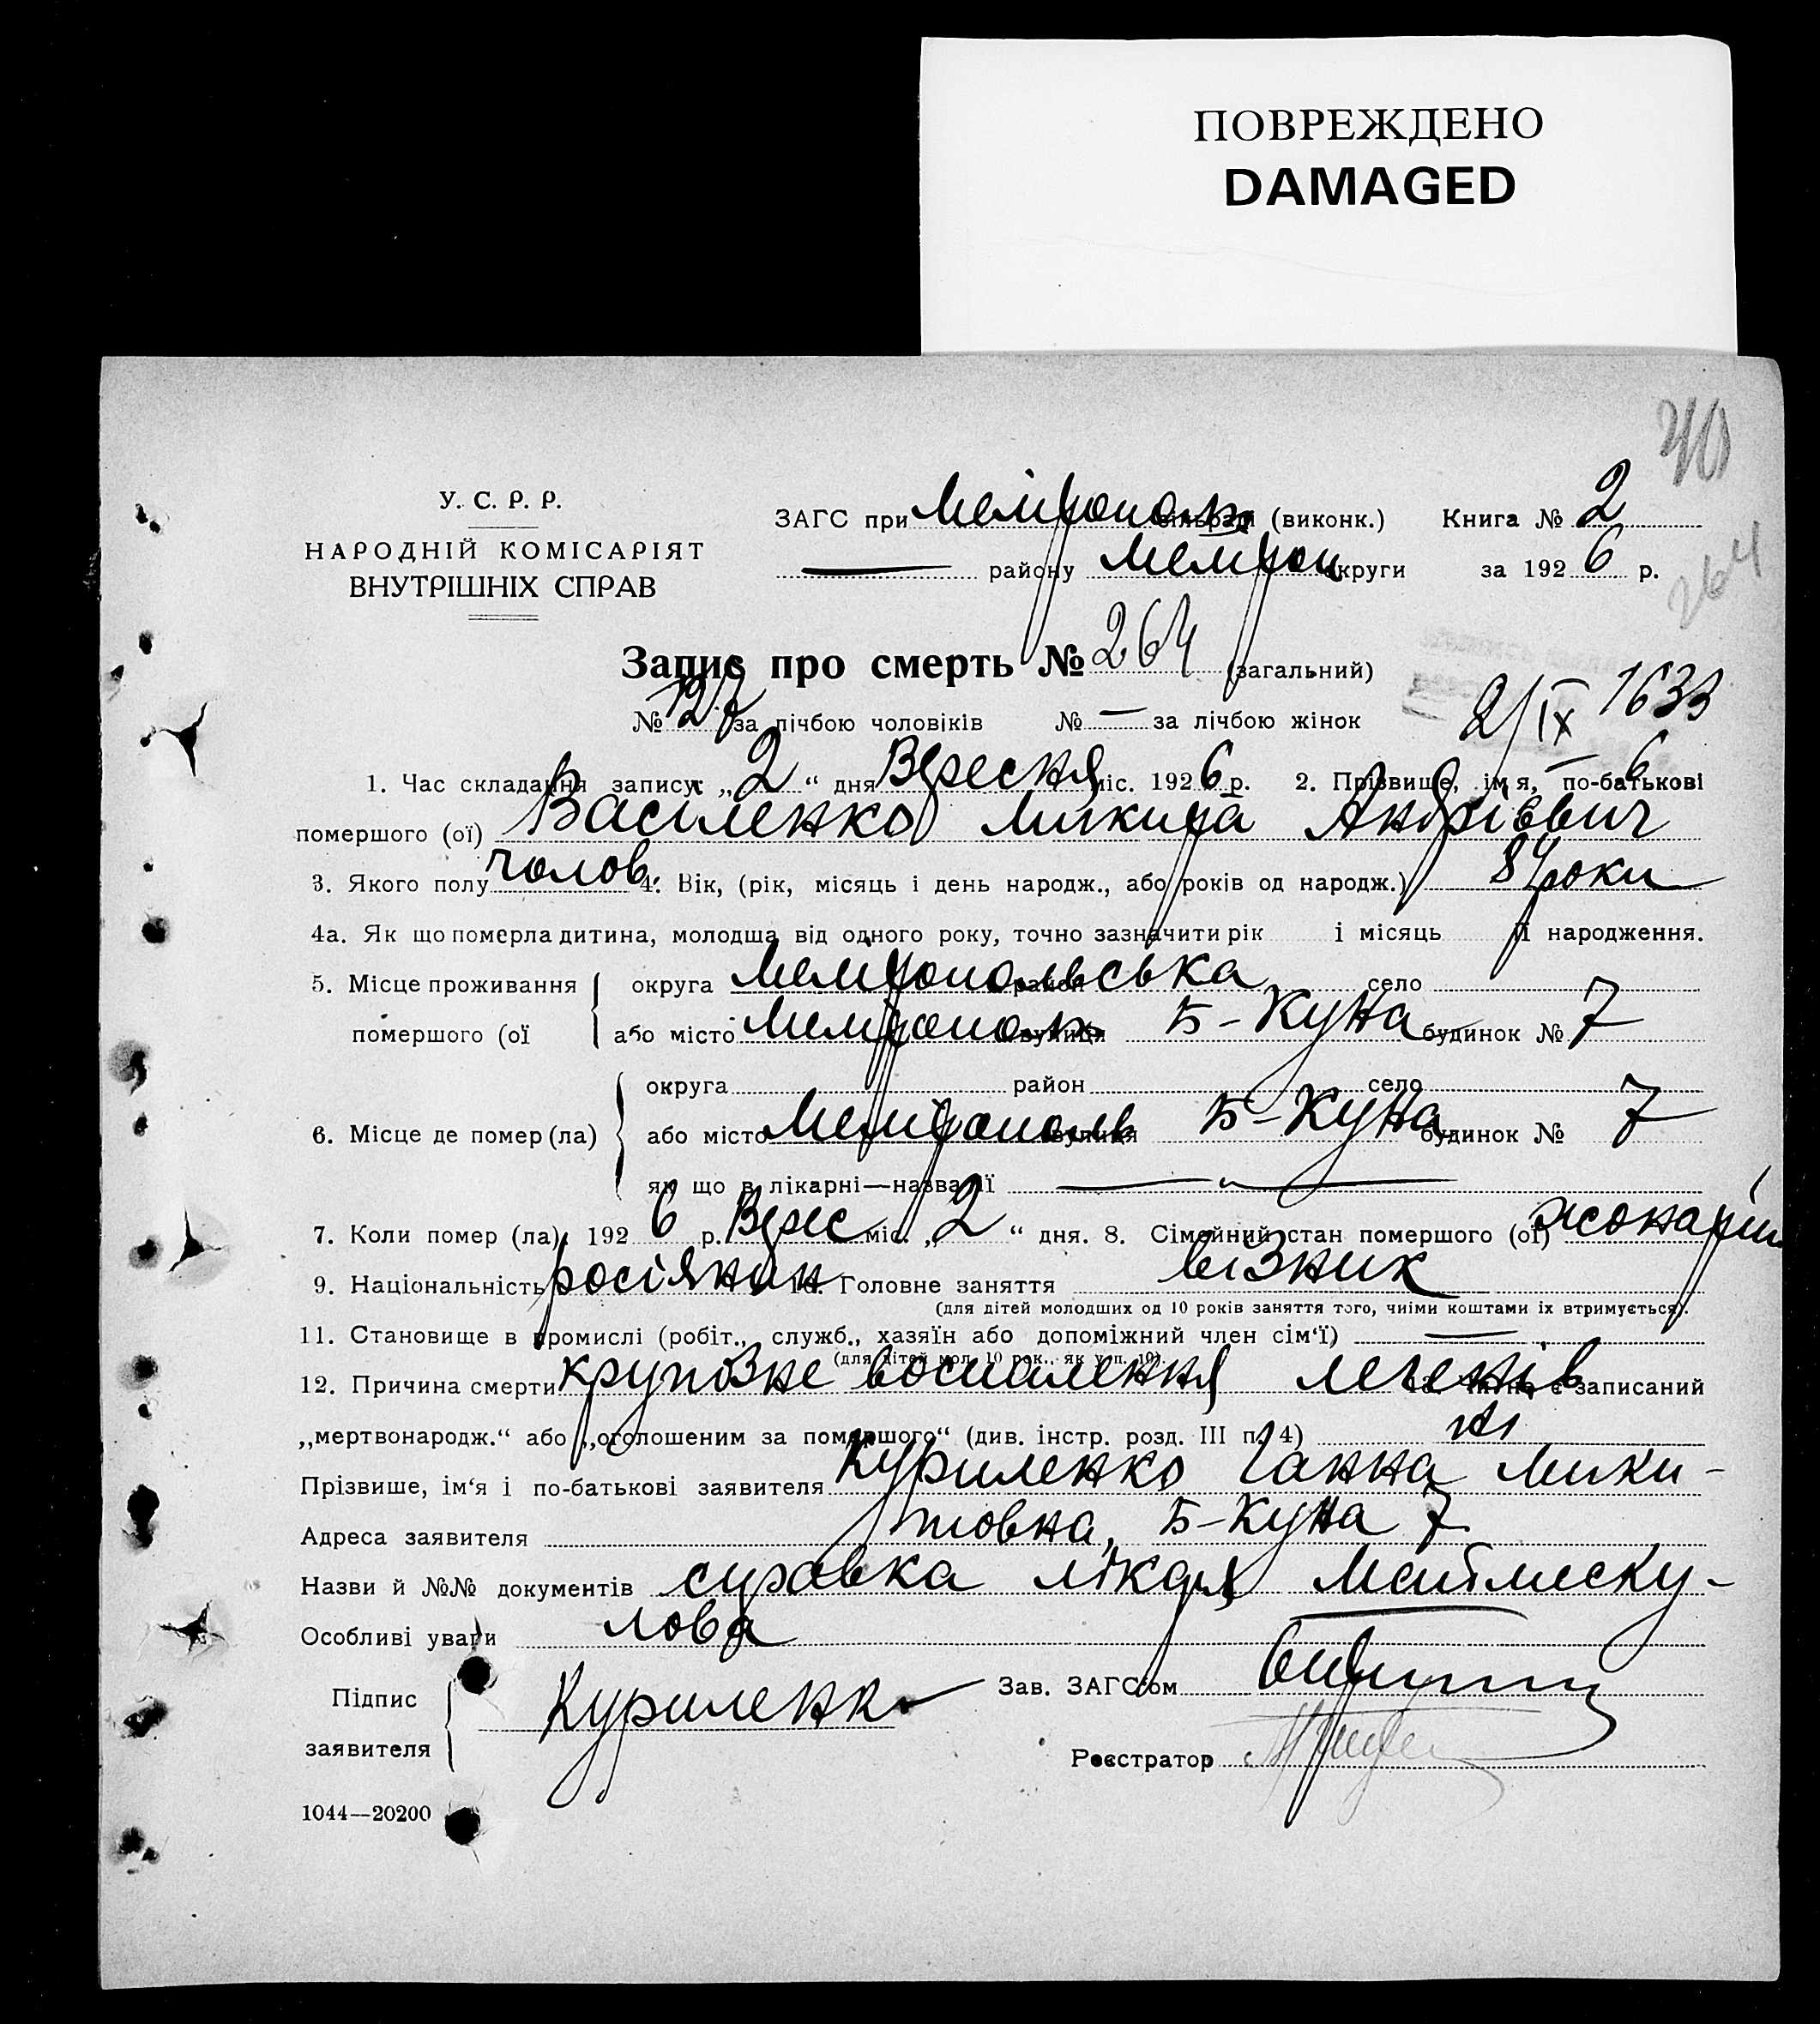 ПОВРЕЖДЕНО
DAMAGED
40
У. С. Р. Р.
НАРОДНІЙ КОМІСАРІЯТ
ВНУТРІШНІХ СПРАВ
ЗАГС при Мелітополь сільраді (виконк.) Книга № 2
— району Мелітоп округи за 1926 р.
264
Запис про смерть № 264 (загальний)
№ 127 за лічбою чоловіків № — за лічбою жінок
2/IX 1633
6
1. Час складання запису: „2“ дня Вересня міс. 1926 р. 2. Прізвище, ім'я, по-батькові
помершого (ої) Василенко Микита Андрієвич
3. Якого полу чолов. 4. Вік, (рік, місяць і день народж., або років од народж.) 84 роки
4а. Як що померла дитина, молодша від одного року, точно зазначити рік і місяць її народження.
5. Місце проживання округа Мелітопольська район село
помершого (ої або місто Мелітополь вулиця Б-Куна будинок № 7
округа район село
6. Місце де помер (ла) або місто Мелітополь вулиця Б-Куна будинок № 7
як що в лікарні—назва її — „ —
7. Коли помер (ла): 1926 р. Верес міс. „2“ дня. 8. Сімейний стан помершого (ої) жонатий
9. Національність росіянин 10. Головне заняття візник
(для дітей молодших од 10 років заняття того, чиїми коштами їх втримується).
11. Становище в промислі (робіт., служб., хазяїн або допоміжний член сім'ї) —
(для дітей мол. 10 рок., як у п. 10).
12. Причина смерти крупозне воспалення легенів 13. Чи не є записаний
„мертвонародж.“ або „оголошеним за помершого“ (див. інстр. розд. III п. 4) ні
Прізвише, ім'я і по-батькові заявителя Куриленко Ганна Мики-
Адреса заявителя товна, Б-Куна 7
Назви й №№ документів справка лікаря
Особливі уваги лова
Підпис
заявителя
Куриленко
Зав. ЗАГС'ом
Реєстратор
1044—20200